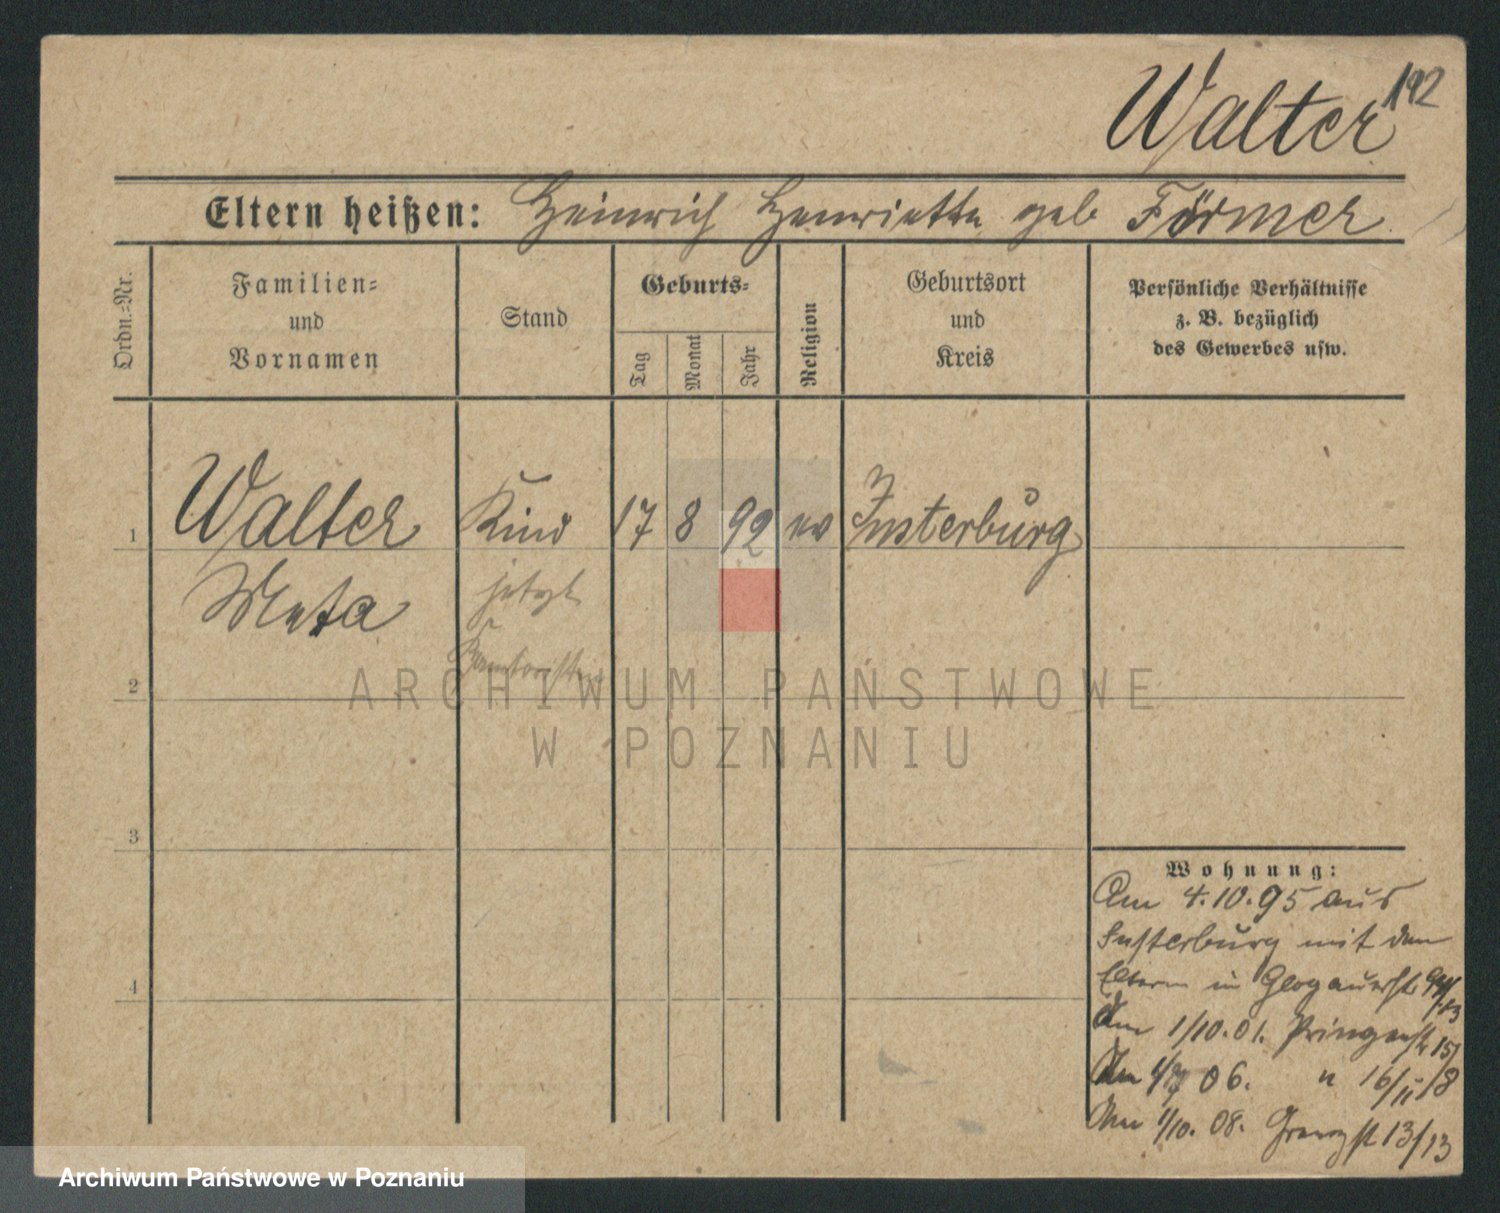 192
Walter
Eltern heißen: Heinrich Henriette geb Förmer
Ordn.-Nr.
Familien-
und
Vornamen
Stand
Geburts-
Tag
Monat
Jahr
Religion
Geburtsort
und
Kreis
Persönliche Verhältnisse
z. B. bezüglich
des Gewerbes usw.
1 Walter Kind 17 8 92 ev Insterburg
Meta jetzt
2
3
4
ARCHIWUM PAŃSTWOWE
W POZNANIU
Wohnung:
Am 4.10.95 aus
Insterburg mit den
Eltern in Glogauerstr
Am 1/10.01.
Am 06. " 16/II/8
Am 1/10. 08. Grenzst 13/13
Archiwum Państwowe w Poznaniu